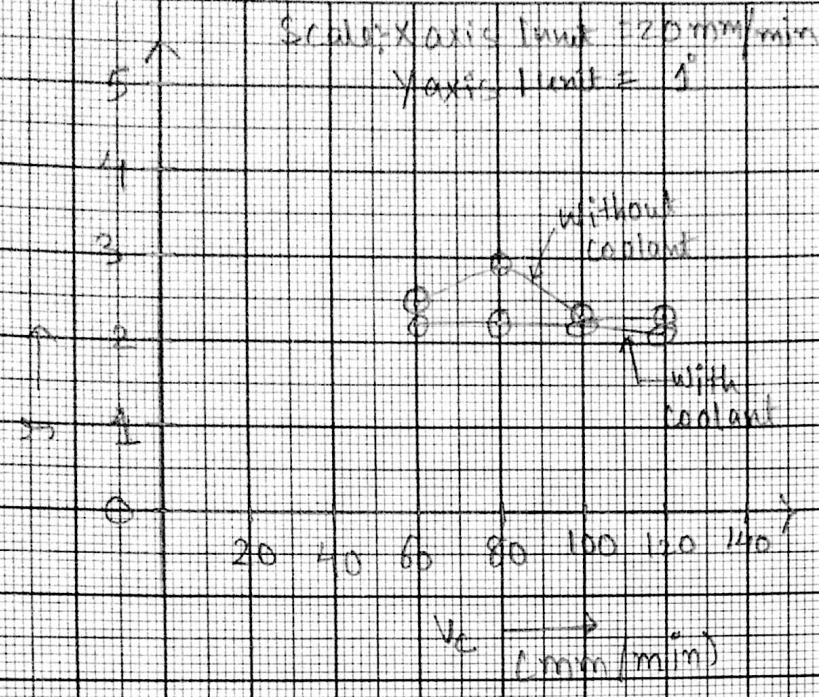 Scale:- X axis 1 unit = 20 mm/min
Y axis 1 unit = 1°
5
4
3
2
1
0
without
coolant
with
coolant
20 40 60 80 100 120 140
Vc
(mm/min)